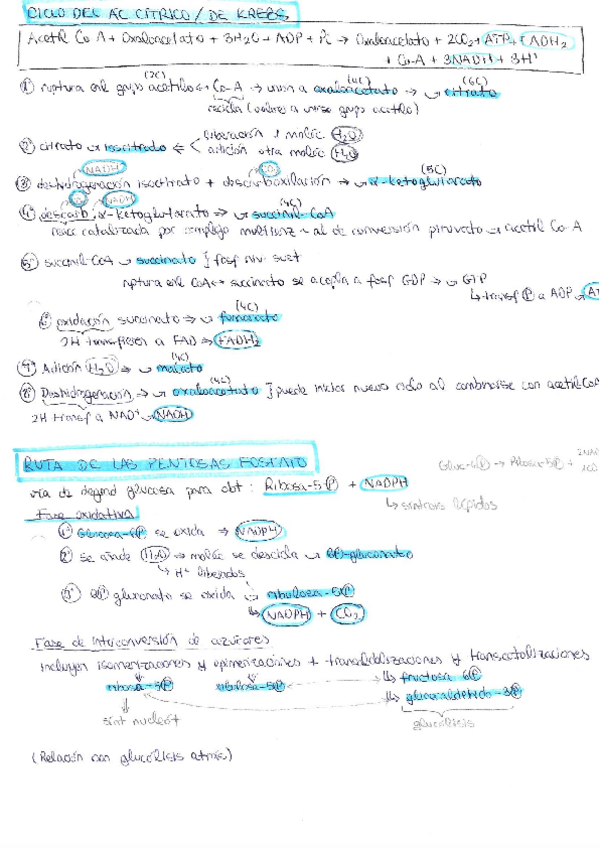 CICLO DEL AC CÍTRICO / DE KREBS
Acetil CoA + Oxaloacelato + 3H2O + ADP + Pi → Oxaloacelato + 2CO2 + ATP + FADH2
+ Co-A + 3NADH + 3H+
(2C) (4C) (6C)
1º ruptura enl grupo acetilo ↔ Co-A → unión a oxaloacetato → citrato
recicla (volver a unirse grupo acetilo)
liberación 1 moléc H2O
2º citrato → isocitrato
adición otra moléc H2O
NADH CO2 (5C)
3º deshidrogenación isocitrato + descarboxilación → α-ketoglutarato
CO2 NADH (4C)
4º descarb. α-ketoglutarato → succinil-CoA
reacc catalizada por complejo multienz ~ al de conversión piruvato → acetil Co-A
5º succinil-CoA → succinato ] fosf niv sust
ruptura enl CoA ↔ succinato se acopla a fosf GDP → GTP
↳ transf P a ADP → AT
(4C)
6º oxidación succinato → fumarato
2H transfieren a FAD → FADH2
(4C)
7º Adición H2O → malato
(4C)
8º Deshidrogenación → oxaloacetato ] puede iniciar nuevo ciclo al combinarse con acetil CoA
2H transf a NAD+ NADH
RUTA DE LAS PENTOSAS FOSFATO
Gluc-6P → Ribosa-5P +
vía de degrad glucosa para obt: Ribosa-5P + NADPH
↳ síntesis lípidos
Fase oxidativa
1º Glucosa-6P se oxida → NADPH
2º se añade H2O → moléc se descicla → 6P-gluconato
↳ H+ liberados
3º 6P gluconato se oxida → ribulosa-5P
↳ NADPH + CO2
Fase de interconversión de azúcares
Incluyen isomerizaciones y epimerizaciones + transaldolizaciones y transcetolizaciones
ribosa-5P ribulosa-5P ↳ fructosa 6P
↳ gliceraldehído-3P
sínt nucleót glucólisis
(Relación con glucólisis atrás)